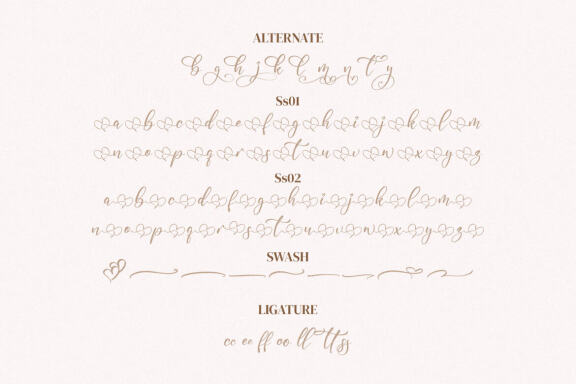 ALTERNATE
b g h j k l m n t y
Ss01
a b c d e f g h i j k l m
n o p q r s t u v w x y z
Ss02
a b c d e f g h i j k l m
n o p q r s t u v w x y z
SWASH
LIGATURE
cc ee ff oo ll tt ss